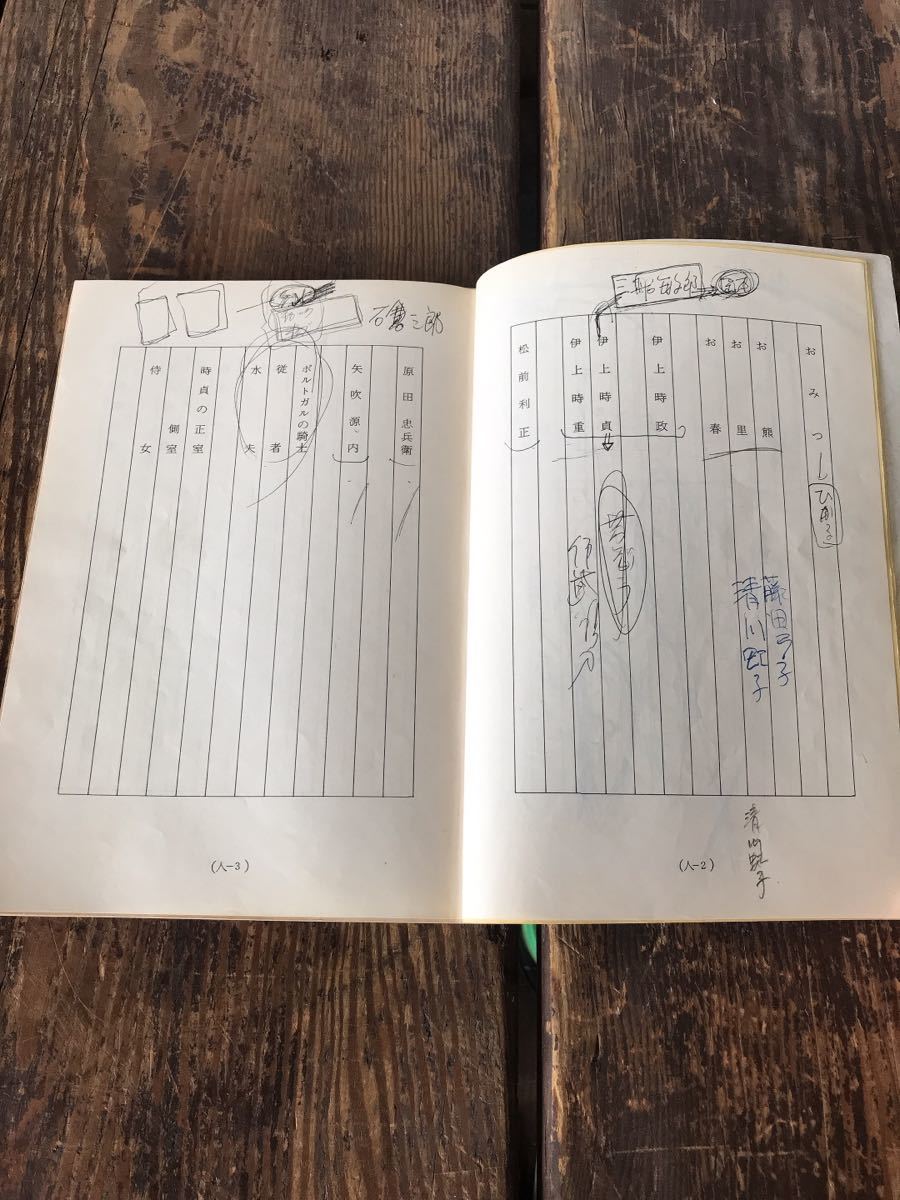 おみつ
ひかる
お熊
お里
お春
伊上時政
伊上時貞
伊上時重
松前利正
藤田弓子
清川虹子
清川虹子
(人-2)
石倉三郎
原田忠兵衛
矢吹源内
ポルトガルの騎士
従者
水夫
時貞の正室
側室
侍女
(人-3)